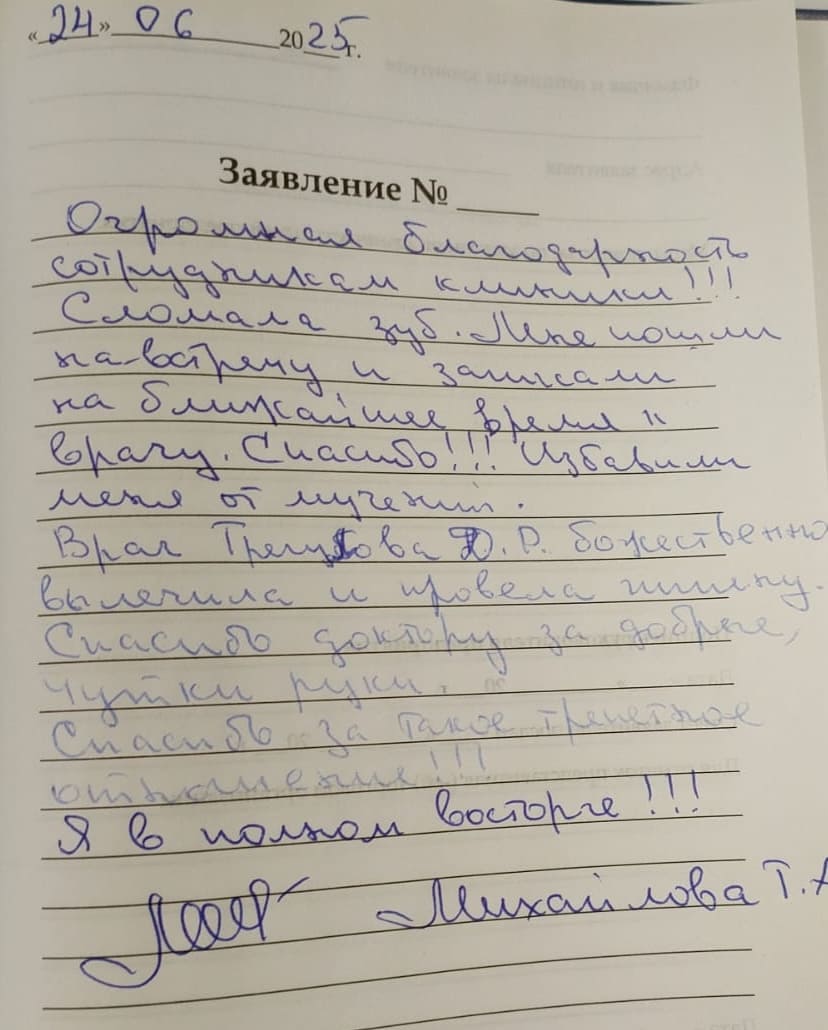 «24» 06 2025г.
Заявление № ____
Огромная благодарность
сотрудникам клиники!!!
Сломала зуб. Мне пошли
на встречу и записали
на ближайшее время к
врачу. Спасибо!!! Избавили
меня от мучений.
Врач Д.Р. божественно
вылечила и провела чистку.
Спасибо доктору за добрые,
чутки руки.
Спасибо за такое трепетное
отношение!!!
Я в полном восторге!!!
Михайлова Т.А